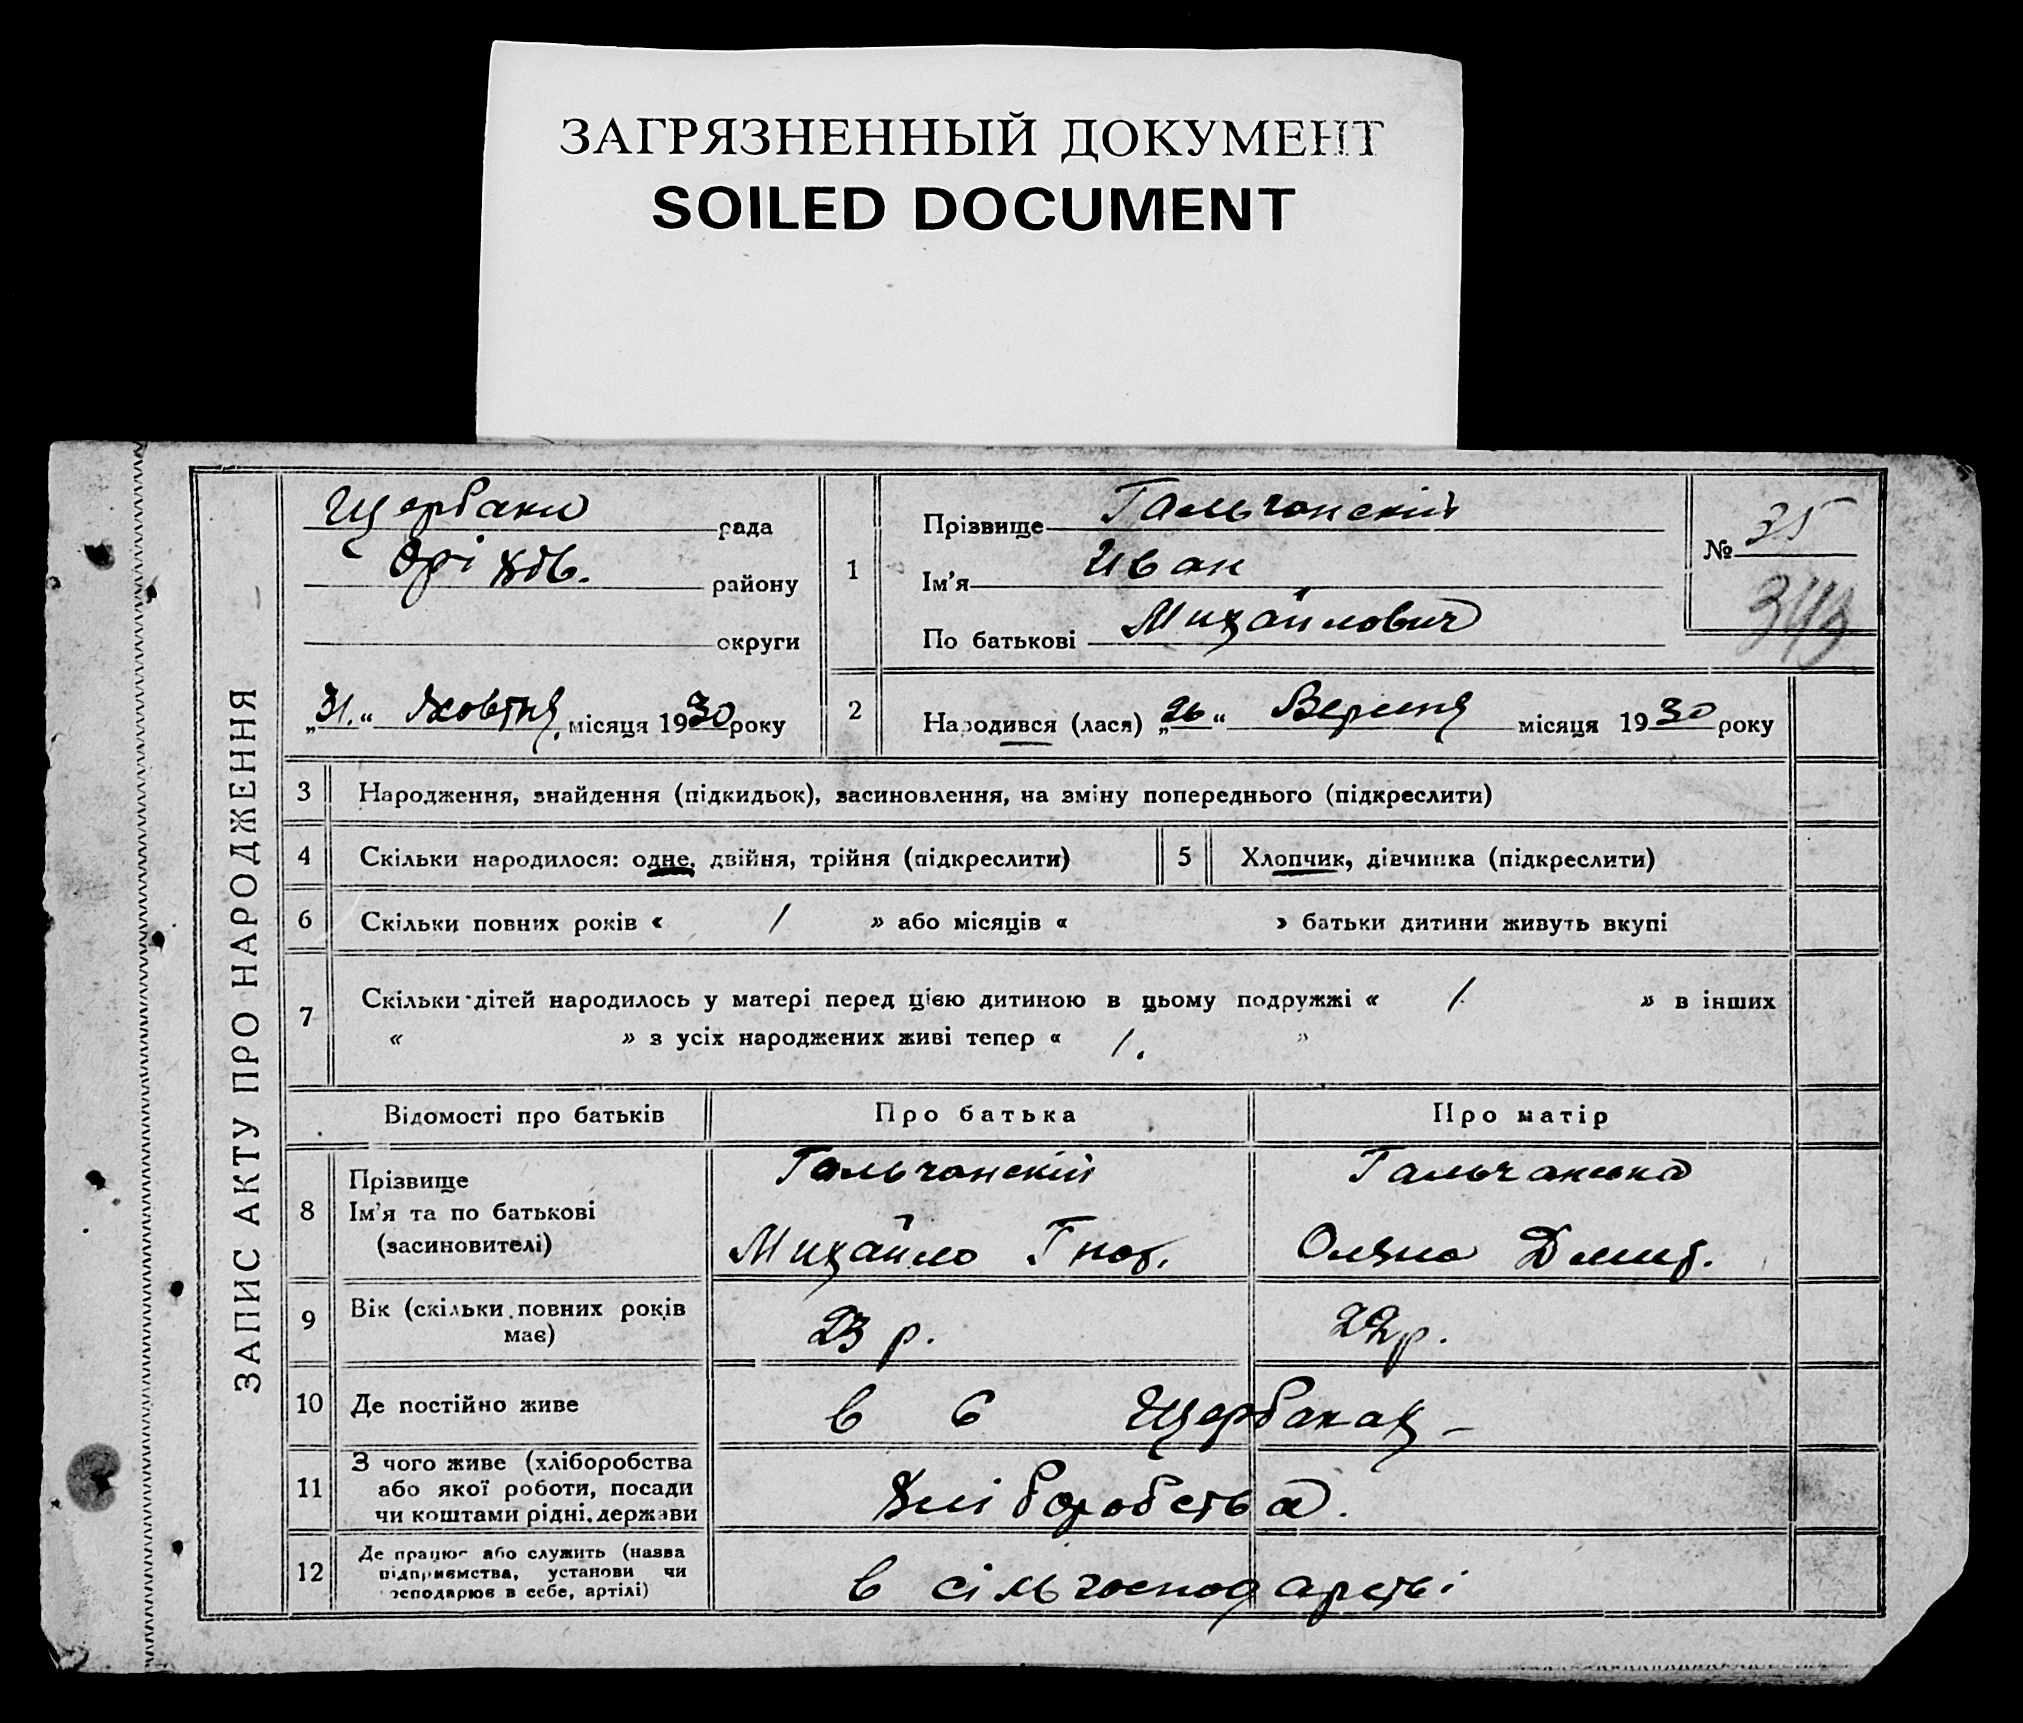 ЗАГРЯЗНЕННЫЙ ДОКУМЕНТ
SOILED DOCUMENT
ЗАПИС АКТУ ПРО НАРОДЖЕННЯ
Щербаки рада
Оріхів. району
округи
„31.“ Жовтня місяця 1930 року
1
Прізвище Гальчанский
Ім'я Иван
По батькові Михайлович
№ 35
343
2
Народився (лася) „26“ Вересня місяця 1930 року
3 Народження, знайдення (підкидьок), засиновлення, на зміну попереднього (підкреслити)
4 Скільки народилося: одне, двійня, трійня (підкреслити)
5 Хлопчик, дівчинка (підкреслити)
6 Скільки повних років « 1 » або місяців « » батьки дитини живуть вкупі
7 Скільки дітей народилось у матері перед цією дитиною в цьому подружжі « 1. » в інших
« » з усіх народжених живі тепер « 1. »
Відомості про батьків Про батька Про матір
8 Прізвище
Ім'я та по батькові
(засиновителі)
Гальчанский
Михайло Гнат.
Гальчанська
Олена Дмит.
9 Вік (скільки повних років
має)
23 р. 22 р.
10 Де постійно живе в с Щербаках
11 З чого живе (хліборобства
або якої роботи, посади
чи коштами рідні, держави
Хліборобства.
12 Де працює або служить (назва
підприємства, установи чи
господарює в себе, артілі)
в сільгосподарстві